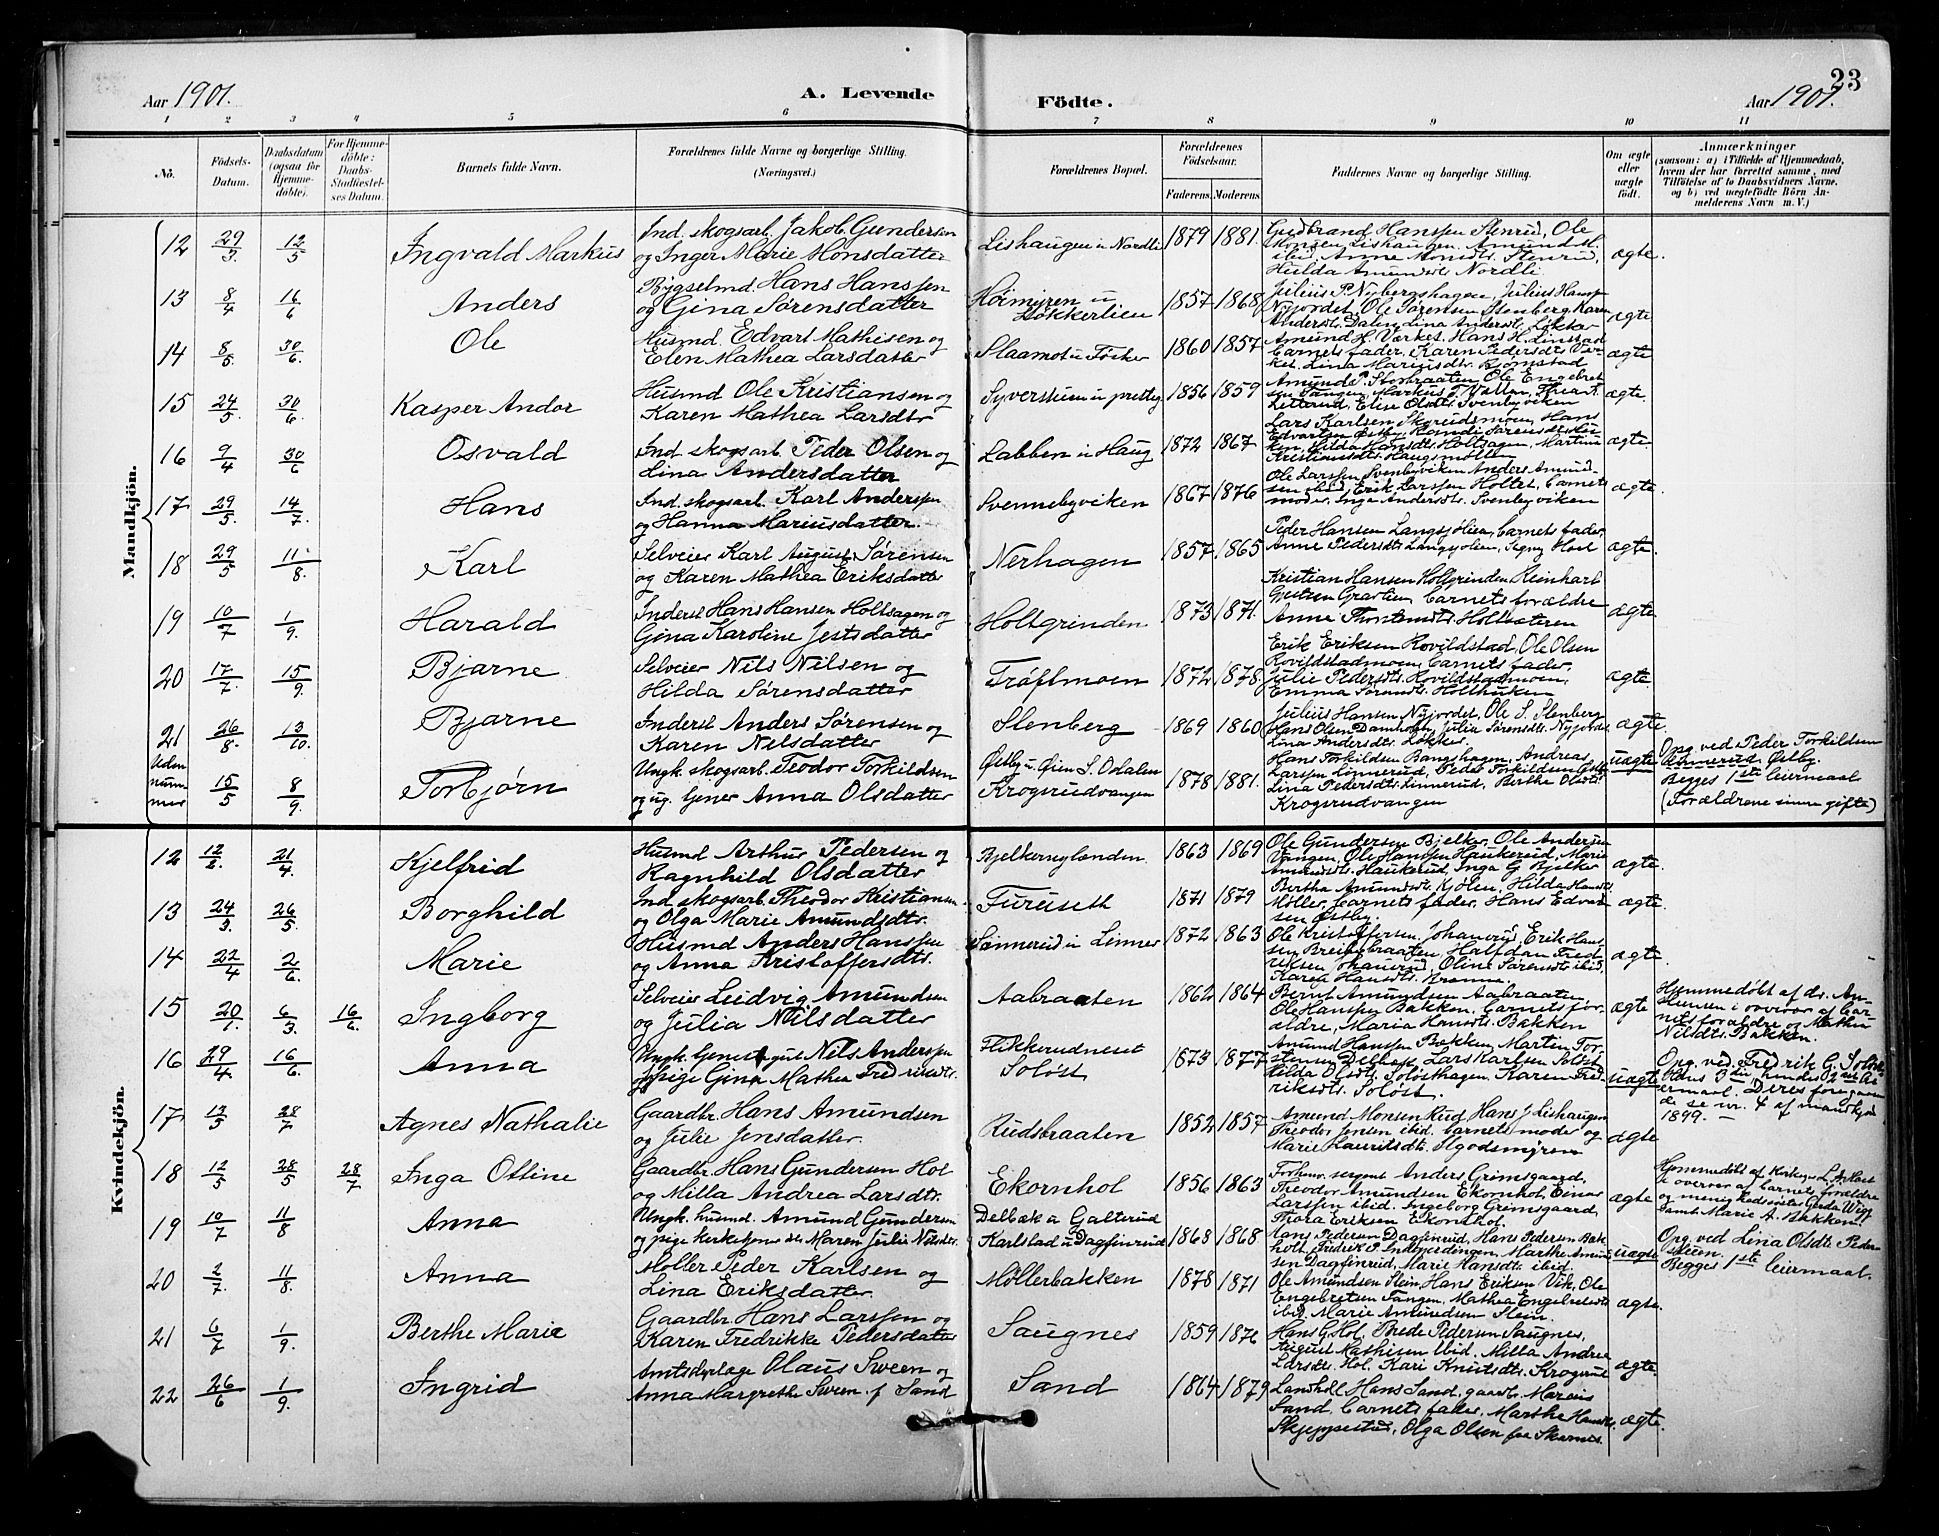 Aar 1901.
A. Levende
Födte.
23
Aar 1901.
1 2 3 4 5 6 7 8 9 10 11
No.
Födsels-Datum.
Daabsdatum (ogsaa for Hjemmedöbte).
For Hjemmedöbte: Daabs-Stadfæstelses Datum.
Barnets fulde Navn.
Forældrenes fulde Navne og borgerlige Stilling. (Næringsvei.)
Forældrenes Bopæl.
Forældrenes Födselsaar.
Faderens. Moderens.
Faddernes Navne og borgerlige Stilling.
Om ægte eller uægte födt.
Anmærkninger
(saasom: a) i Tilfælde af Hjemmedaab, hvem der har forrettet samme, med Tilföielse af to Daabsvidners Navne, og b) ved uægtefödte Börn Anmelderens Navn m. V.)
Mandkjön.
12 29/3 12/5 Ingvald Markus Ind. skogsarb. Jakob Gundersen og Inger Marie Monsdatter Lishaugen u Nordli 1879 1881. Gudbrand Hanssen Stenrud, Ole Monsen Lishaugen, Amund ibid, Anne Monsdt. Stenrud, Hulda Amundsdt. Nordli ægte.
13 8/4 16/6 Anders Bygselmd. Hans Hanssen og Gina Sørensdatter Høimyren u Løkkerlien 1857 1868 Julius P. Nybergshagen, Julius Hanssen Nyjordet, Ole Sørensen Stenberg, Karen Andersdt. Dalen, Lina Andersdt. Løkker ægte
14 8/5 30/6 Ole Husmd. Edvart Mathisen og Elen Mathea Larsdatter Slaamot u Fosker 1860 1857 Amund H. Værket, Hans H. Linstad barnets fader, Karen Pedersdt. Værket, Lina Mariusdt. Bjørnstad ægte
15 24/5 30/6 Kasper Andor Husmd Ole Kristiansen og Karen Mathea Larsdtr Syverstuen u 1856 1859 Amund P. Storbraaten, Ole Engebretsen Tangen, Markus T. Vollen, Elise Olsdt. Svenbyviken ægte.
16 9/4 30/6 Osvald Ind. skogsarb. Peder Olsen og Lina Andersdatter Labben u Haug 1872 1867 Lars Karlsen Skyrudsmoen, Hans Edvartsen Østby, Hilda Hansdt. Holtsagen, Martina Kristiansdt. Haugsmøllen ægte
17 29/5 14/7. Hans Ind. skogsarb. Karl Anderssen og Hanna Mariusdatter. Svennebyviken 1867 1876 Ole Larssen Svenbyviken Anders Amundsen ibid, Erik Larssen Holtet, barnets moder, Inga Andersdt. Svenbyviken ægte
18 29/5 11/8. Karl Selveier Karl August Sørensen og Karen Mathea Eriksdatter Nerhagen 1857 1865 Peder Hansen Langsjølien, barnets fader, Anne Pedersdt. Langsjolien, Signy Hoel ægte.
19 10/7 1/9. Harald Inderst Hans Hansen Holtsagen og Gina Karoline Jestsdatter Holtgrinden 1873 1871. Kristian Hansen Holtgrinden Reinhart barnets forældre Anne Thorstensdt. ægte
20 17/7. 15/9. Bjarne Selveier Nils Nilsen og Hilda Sørensdatter Trøftmoen 1872 1878 Erik Eriksen Rovildstad, Ole Olsen Rovildstadmoen, barnets fader, Julie Pedersdt. Rovildstadmoen, Emma Sørensdt. Holthuken ægte.
21 26/8. 13/10. Bjarne Inderst Anders Sørensen og Karen Nilsdatter Stenberg 1869 1860 Julius Hansen Nyjordet, Ole S. Stenberg Hans Olsen Damholen, Julia Sørensdt. Nyjordet Lina Andersdt. Løkker. ægte
Uden nummer 15/5 8/9. Torbjørn Ungk. skogsarb. Teodor Torkildsen og ug. tjener Anna Olsdatter Østby u. Øien S. Odalen Krogsrudvangen 1878 1881. Hans Torkildsen Bangshagen, Andreas Larssen Linnerud, Peder Torkildsen Østby, Lina Pedersdt. Linnerud, Berthe Olsdt. Krogsrudvangen uægte Opg. ved Peder Torkildsen Østby. Begges 1ste leiermaal (Forældrene sinne gifte)
Kvindekjön.
12 12/2. 21/4. Kjelfrid Husmd Arthur Pedersen og Ragnhild Olsdatter Bjelkernylænden 1863 1869 Ole Gundersen Bjelker, Ole Andersen Vangen, Ole Hanssen Haukerud, Marie Amundsdt. Haukerud, Inga G. Bjelker ægte.
13 24/3 26/5. Borghild Ind. skogsarb. Theodor Kristiansen og Olga Marie Amundsdtr. Furuseth 1871 1879 Bertha Amundsdt. Kjølen, Hilda Hansdt. Møller, barnets fader, Hans Edvartsen Østby. ægte.
14 22/4 2/6. Marie Husmd Anders Hanssen og Anna Kristoffersdtr. Sønnerud u Linner 1872 1863 Ole Kristoffersen Johanrud, Erik Hanssen Breibybraaten, Halfdan Fredriksen Johanrud, Oline Sørensdt. ibid, Karen Hansdt. ægte.
15 20/1. 6/3. 16/6. Ingborg Selveier Ludvig Amundsen og Julia Nilsdatter Aabraaten 1862 1864 Bernt Amundsen Aabraaten, Ole Hanssen Bakken, barnets forældre, Maria Hansdt. Bakken ægte Hjemmedøbt af dr. Anthonsen i overvær af barnets forældre og Mathia Nilsdt. Bakken.
16 29/4 16/6. Anna Ungk. tjenestegut Nils Anderssen og pige Gina Mathea Fredriksdt. Flikkerudneset Soløst 1873 1877 Amund Hanssen Bakken, Martin Torstensen Delbæk, Lars Karlsen Soløst, Hilda Olsdt. Soløsthagen, Karen Fredriksdt. Soløst. uægte Opg. ved. Fredrik G. Soløst. Hans 3die, hendes 2den leiermaal. Deres foregaaende se nr. 4 af mandkjøn 1899.
17 13/5 28/7 Agnes Nathalie Gaardbr. Hans Amundsen og Julie Jensdatter. Rudsbraaten 1852 1857 Amund Monsen Rud, Hans J. Lishaugen Theodor Jensen ibid. barnets moder og Marie Lauritsdt. Ulgodsmyren ægte
18 12/5 28/5 28/7 Inga Ottine Gaardbr. Hans Gundersen Hol og Milla Andrea Larsdtr. Ekornhol 1856 1863 Forhenv. sergent Anders Grimsgaard, Theodor Amundsen Ekornhol, Einar Larssen ibid. Ingeborg Grimsgaard, Thora Eriksen Ekornhol. ægte Hjemmedøbt af kirkes. L. Aslast i overvær af barnets forældre og menighedssøster Gerda Wiger samt Marie A. Bakken.
19 10/7 11/8 Anna Ungk. husmd. Amund Gundersen og pige Maren Julie Nilsdt. Delbæk a Galterud Karlstad u Dagfinrud 1868 1868 Hans Pedersen Dagfinrud, Hans Pedersen Bakholt, Fredrik P. Indlperdingen, Marthe Amundsen Dagfinrud, Marie Hansdt. ibid. uægte Opg. ved Lina Olsdt. Pederstuen. Begges 1ste leiermaal.
20 2/7. 11/8. Anna Møller Peder Karlsen og Lina Eriksdatter. Møllerbakken 1878 1871 Ole Amundsen Stein, Hans Eriksen Vik, Ole Engebretsen Tangen, Mathea Engebretsdt. ibid, Marie Amundsen Stein. ægte.
21 6/7 1/9. Berthe Marie Gaardbr Hans Larssen og Karen Fredrikke Pedersdatter Saugnes 1859 1876 Hans G. Hol, Brede Pedersen Saugnes, August Mathisen Ibid, Milla Andrea Larsdt. Hol, Kari Knutsdt. Krogsrud ægte.
22 26/6 1/9. Ingrid Amtsdyrlæge Olaus Sween og Anna Margrethe Sween f. Sand Sand 1864 1879 Landhdl Hans Sand, gaardbr. Marius Sand, barnets fader, Marthe Hansdt. Skjeppestad, Olga Olsen fra Skarnes. ægte.